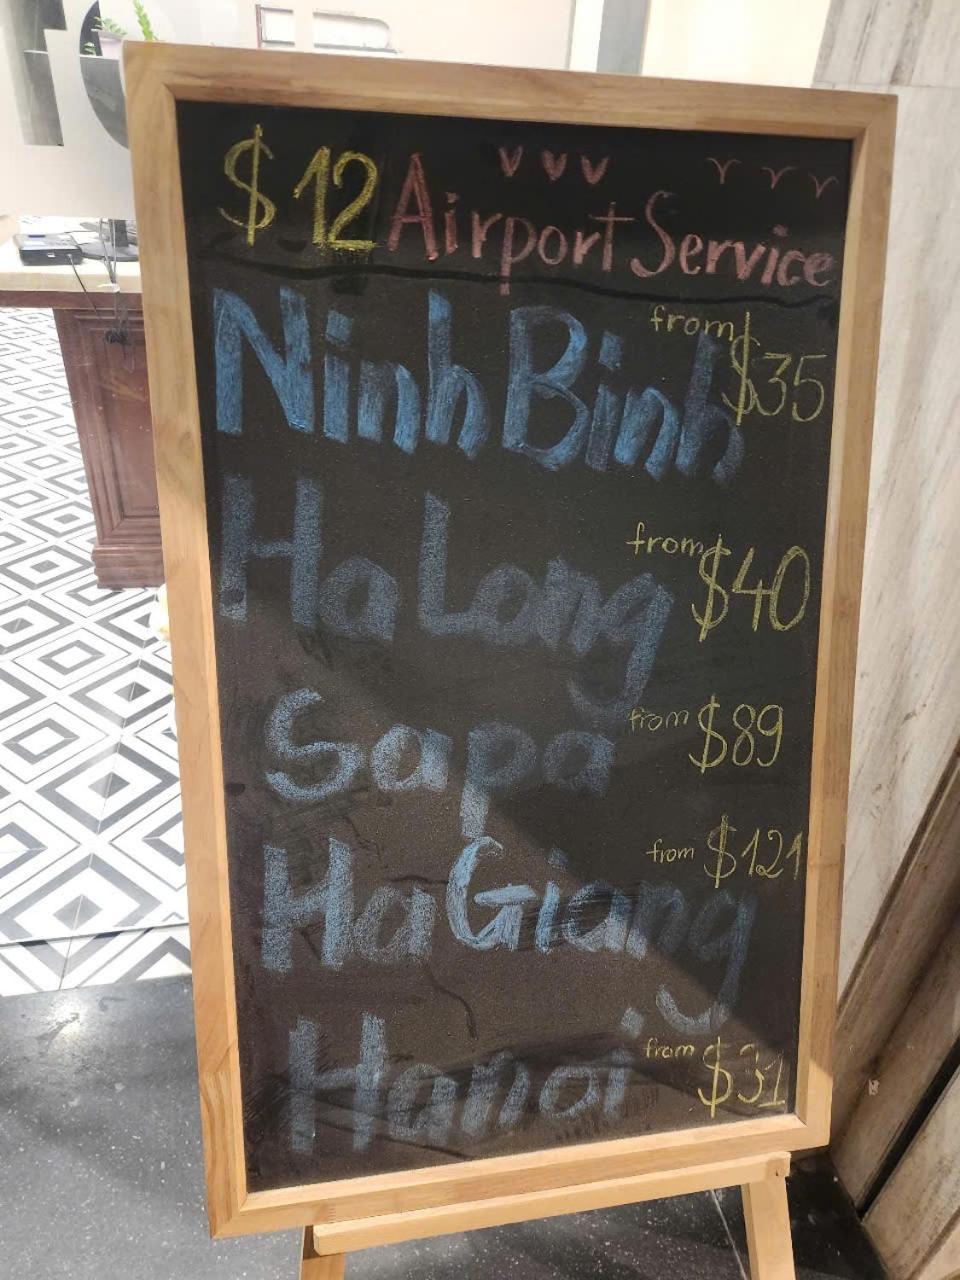 $12 Airport Service
Ninh Binh from $35
Ha Long from $40
Sapa from $89
Ha Giang from $121
Hanoi from $31